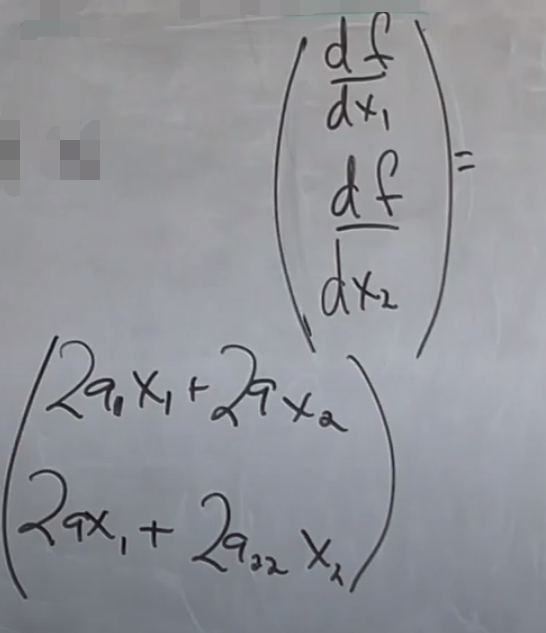 df
dx₁
df
dx₂
=
2a₁x₁+2ax₂
2ax₁+2a₂₂x₂